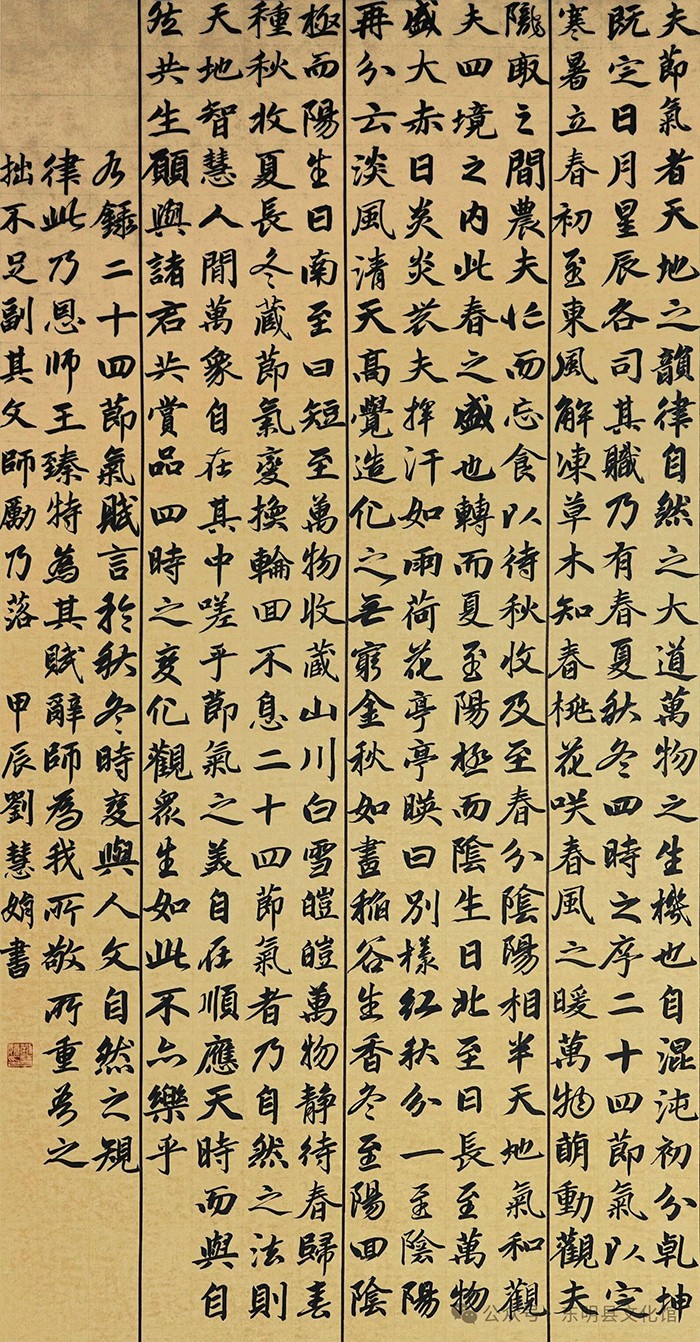 夫節氣者天地之韻律自然之大道萬物之生機也自混沌初分乾坤
既定日月星辰各司其職乃有春夏秋冬四時之序二十四節氣以定
寒暑立春初至東風解凍草木知春桃花咲春風之暖萬物萌動觀夫
隴畝之間農夫忙而忘食以待秋收及至春分陰陽相半天地氣和觀
夫四境之內此春之盛也轉而夏至陽極而陰生日北至日長至萬物
盛大赤日炎炎農夫揮汗如雨荷花亭亭暎日別樣紅秋分一至陰陽
再分云淡風清天高覺造化之無窮金秋如畫稻谷生香冬至陽回陰
極而陽生日南至日短至萬物收藏山川白雪皚皚萬物靜待春歸春
種秋收夏長冬藏節氣變換輪回不息二十四節氣者乃自然之法則
天地智慧人間萬象自在其中嗟乎節氣之美自在順應天時而與自
然共生願與諸君共賞品四時之變化觀眾生如此不亦樂乎
右錄二十四節氣賦言於秋冬時變與人文自然之規
律此乃恩師王臻特為其賦辭師為我所敬所重吾之
拙不足副其文師勵乃落 甲辰劉慧娟書
公众号 · 东明县文化馆